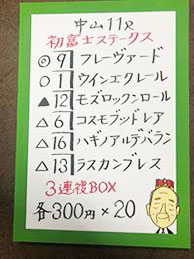 中山11R
初富士ステークス
◎9 フレーヴァード
○1 ウインエクレール
▲12 モズロックンロール
△6 コスモブッドレア
△16 ハギノアルデバラン
△13 ラスカンブレス
3連複BOX
各300円×20